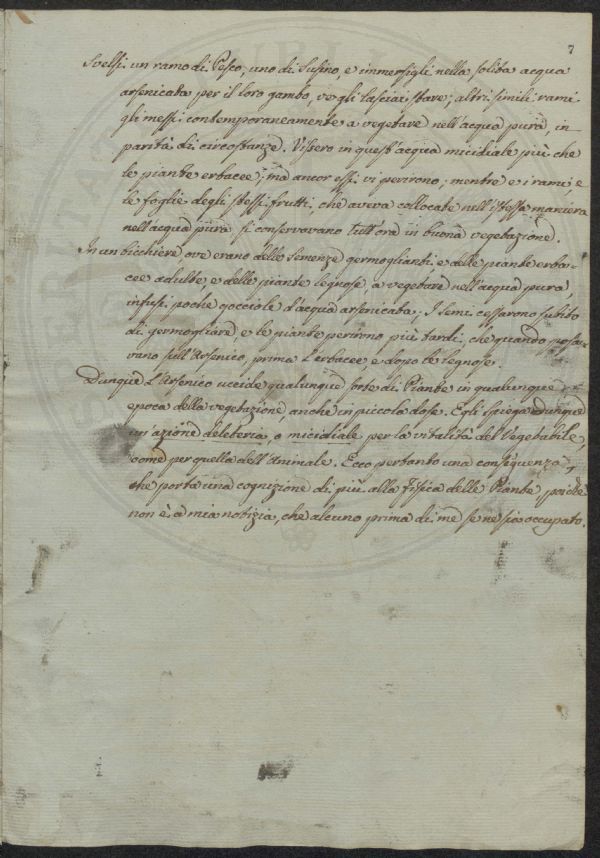 7
Svelsi un ramo di Pesco, uno di Susino, e immersigli nella solita acqua
arsenicata per il loro gambo, ve gli lasciai stare; altri simili rami
gli messi contemporaneamente a vegetare nell'acqua pura, in
parità di circostanze. Vissero in quest'acqua micidiale più che
le piante erbacee; ma ancor essi vi perirono; mentre e i rami, e
le foglie degli stessi frutti, che aveva collocate nell'istessa maniera
nell'acqua pura si conservavano tutt'ora in buona vegetazione.
In un bicchiere, ove erano delle semenze germoglianti e delle piante erba-
cee adulte, e delle piante legnose, a vegetare nell'acqua pura,
infusi poche gocciole d'acqua arsenicata. I semi cessarono subito
di germogliare, e le piante perirono più tardi, che quando posa-
vano sull'Arsenico, prima l'erbacee, e dopo le legnose.
Dunque l'Arsenico uccide qualunque sorte di Piante in qualunque
epoca della vegetazione, anche in piccola dose. Egli spiega dunque
un'azione deleteria, o micidiale per la vitalità del Vegetabile,
come per quella dell'Animale. Ecco pertanto una conseguenza,
che porta una cognizione di più alla Fisica delle Piante poichè
non è a mia notizia, che alcuno prima di me se ne sia occupato.